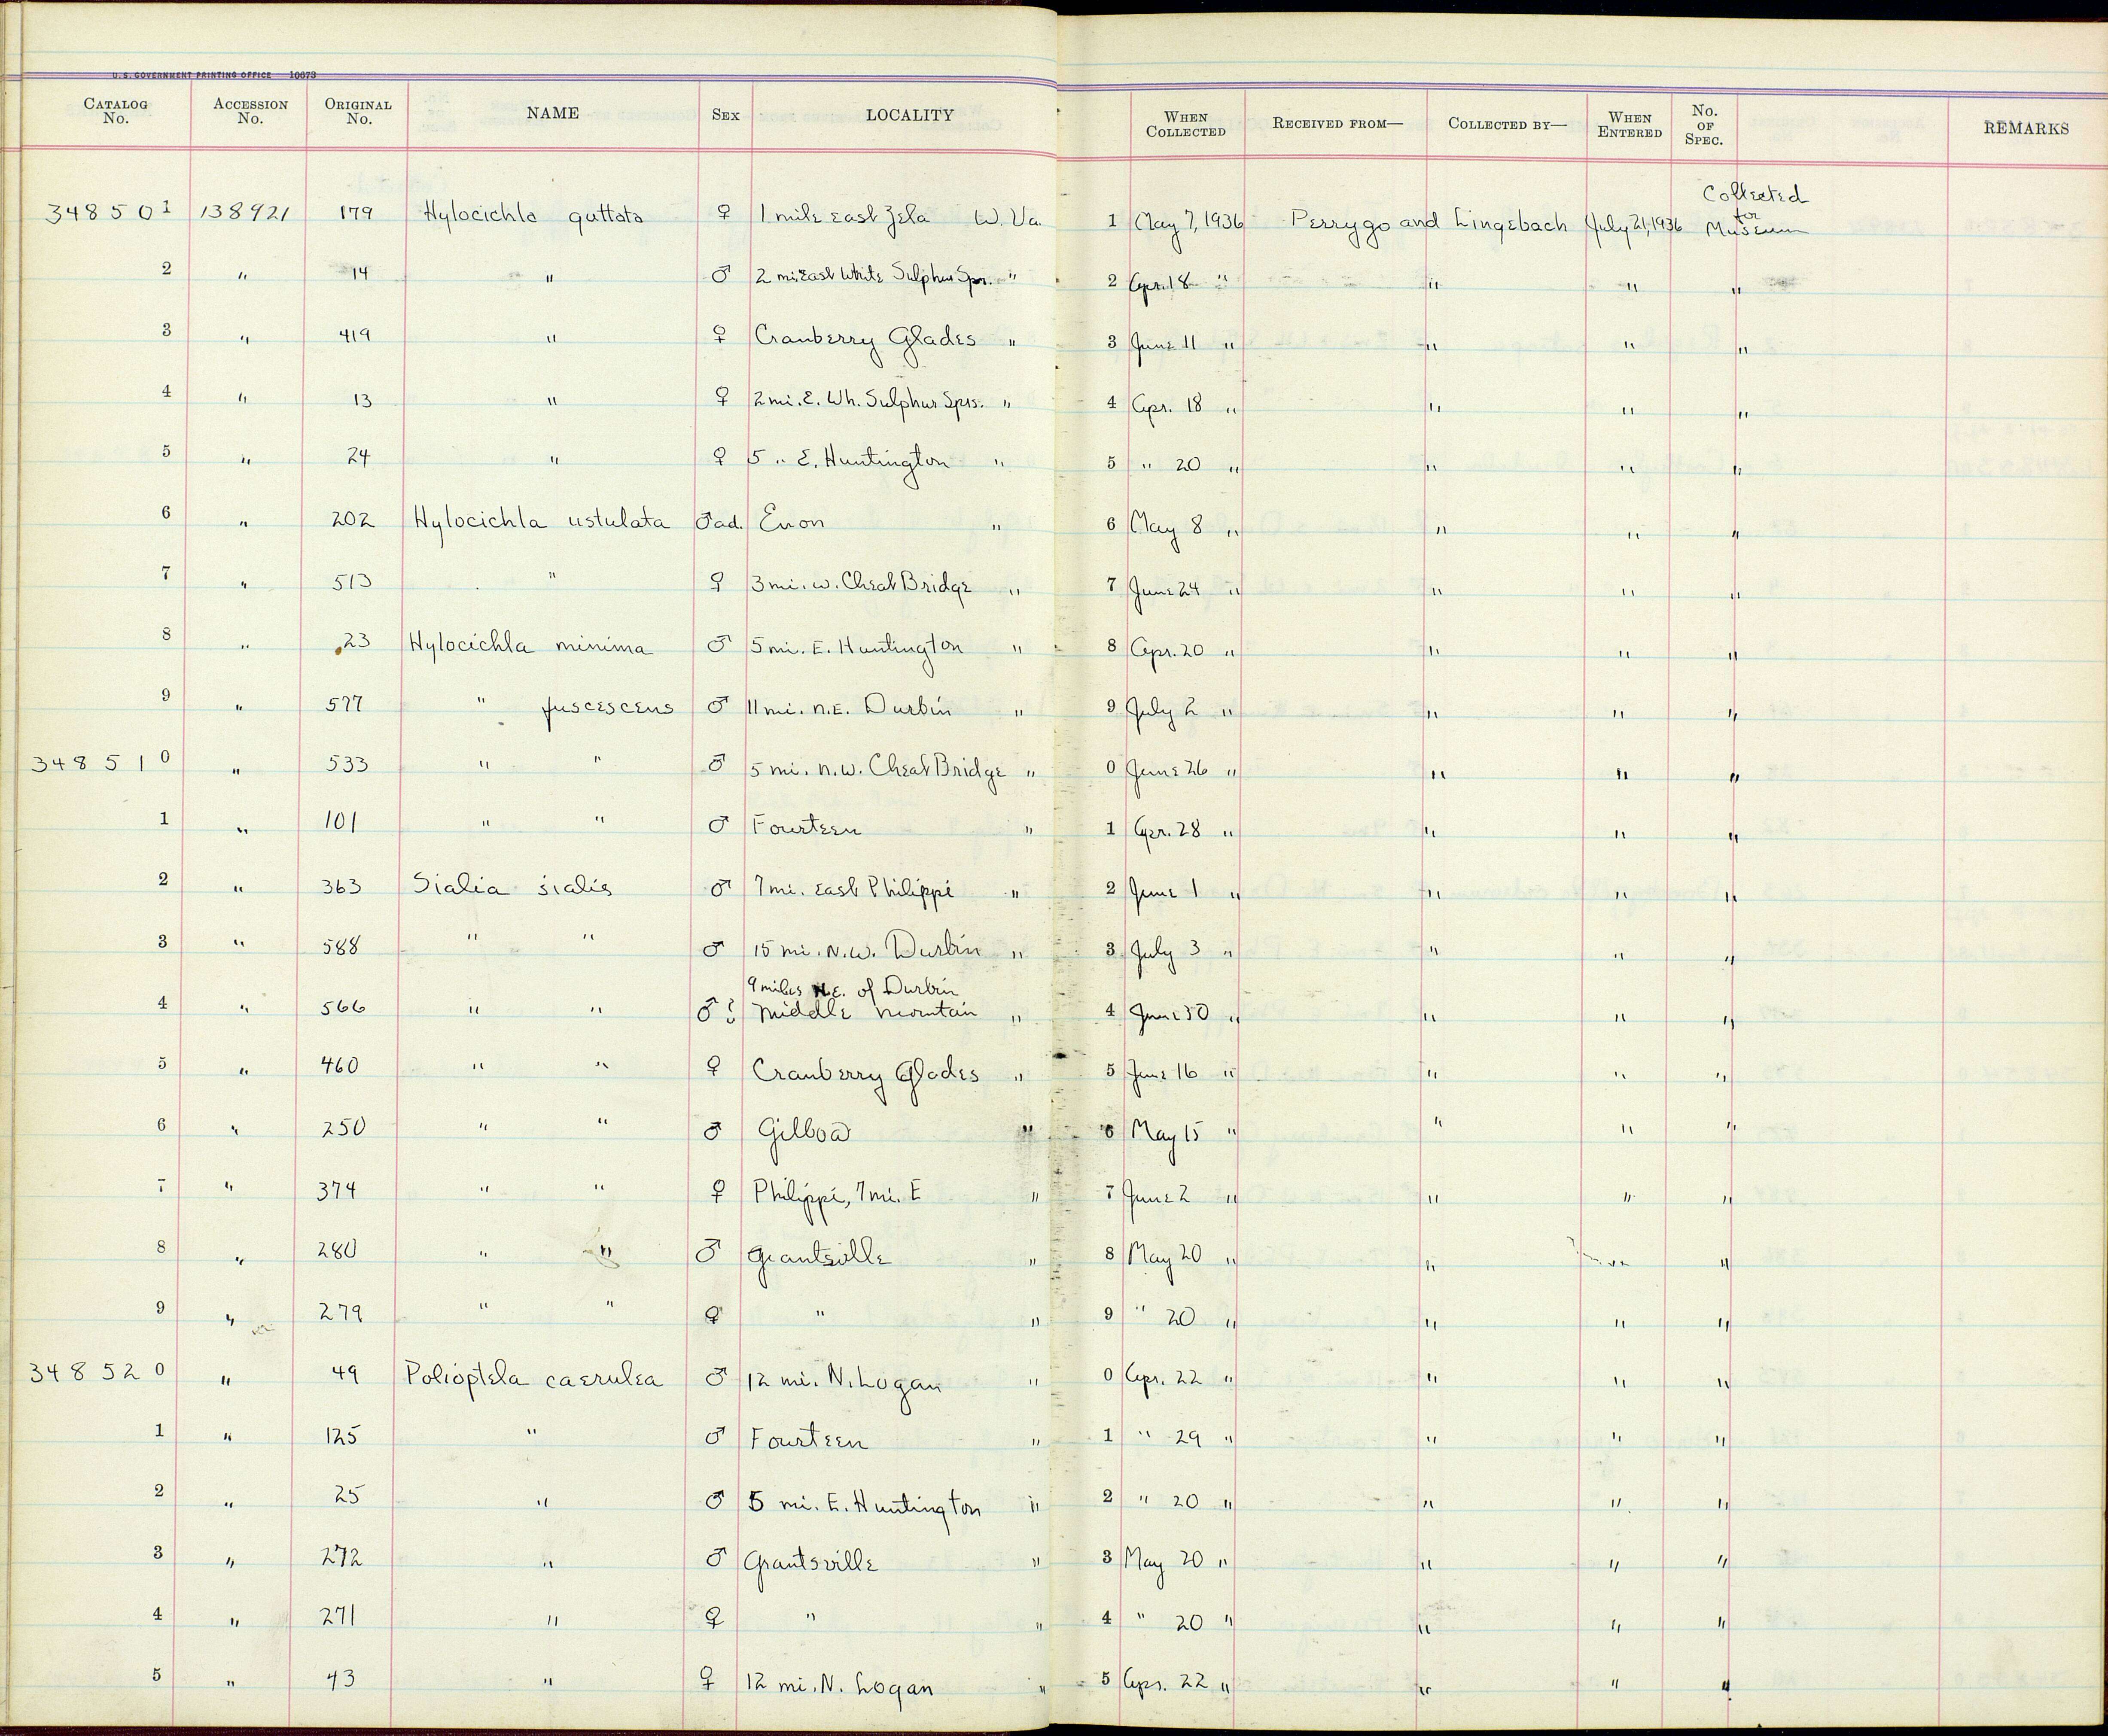 U.S. GOVERNMENT PRINTING OFFICE 10673
CATALOG No. ACCESSION No. ORIGINAL No. NAME SEX LOCALITY WHEN COLLECTED RECEIVED FROM— COLLECTED BY— WHEN ENTERED No. OF SPEC. REMARKS
348501 138921 179 Hylocichla guttata ♀ 1 mile east Zela W. Va. 1 May 7, 1936 Perrygo and Lingebach July 21, 1936 Collected for Museum
2 " 14 " ♂ 2 mi. East White Sulphur Spr. " 2 Apr. 18 " " " "
3 " 419 " ♀ Cranberry Glades " 3 June 11 " " " "
4 " 13 " ♀ 2 mi. E. Wh. Sulphur Sprs. " 4 Apr. 18 " " " "
5 " 24 " ♀ 5 " E. Huntington " 5 " 20 " " " "
6 " 202 Hylocichla ustulata ♂ad. Enon " 6 May 8 " " " "
7 " 513 " ♀ 3 mi. W. Cheat Bridge " 7 June 24 " " " "
8 " 23 Hylocichla minima ♂ 5 mi. E. Huntington " 8 Apr. 20 " " " "
9 " 577 " fuscescens ♂ 11 mi. N.E. Durbin " 9 July 2 " " " "
348510 " 533 " " ♂ 5 mi. N.W. Cheat Bridge " 0 June 26 " " " "
1 " 101 " " ♂ Fourteen " 1 Apr. 28 " " " "
2 " 363 Sialia sialis ♂ 7 mi. east Philippi " 2 June 1 " " " "
3 " 588 " " ♂ 15 mi. N.W. Durbin " 3 July 3 " " " "
9 miles N.E. of Durbin
4 " 566 " " ♂? Middle Mountain " 4 June 30 " " " "
5 " 460 " " ♀ Cranberry Glades " 5 June 16 " " " "
6 " 250 " " ♂ Gilboa " 6 May 15 " " " "
7 " 374 " " ♀ Philippi, 7 mi. E " 7 June 2 " " " "
8 " 280 " " ♂ Grantsville " 8 May 20 " " " "
9 " 279 " " ♀ " " 9 " 20 " " " "
348520 " 49 Polioptela caerulea ♂ 12 mi. N. Logan " 0 Apr. 22 " " " "
1 " 125 " ♂ Fourteen " 1 " 29 " " " "
2 " 25 " ♂ 5 mi. E. Huntington " 2 " 20 " " " "
3 " 272 " ♂ Grantsville " 3 May 20 " " " "
4 " 271 " ♀ " " 4 " 20 " " " "
5 " 43 " ♀ 12 mi. N. Logan " 5 Apr. 22 " " " "